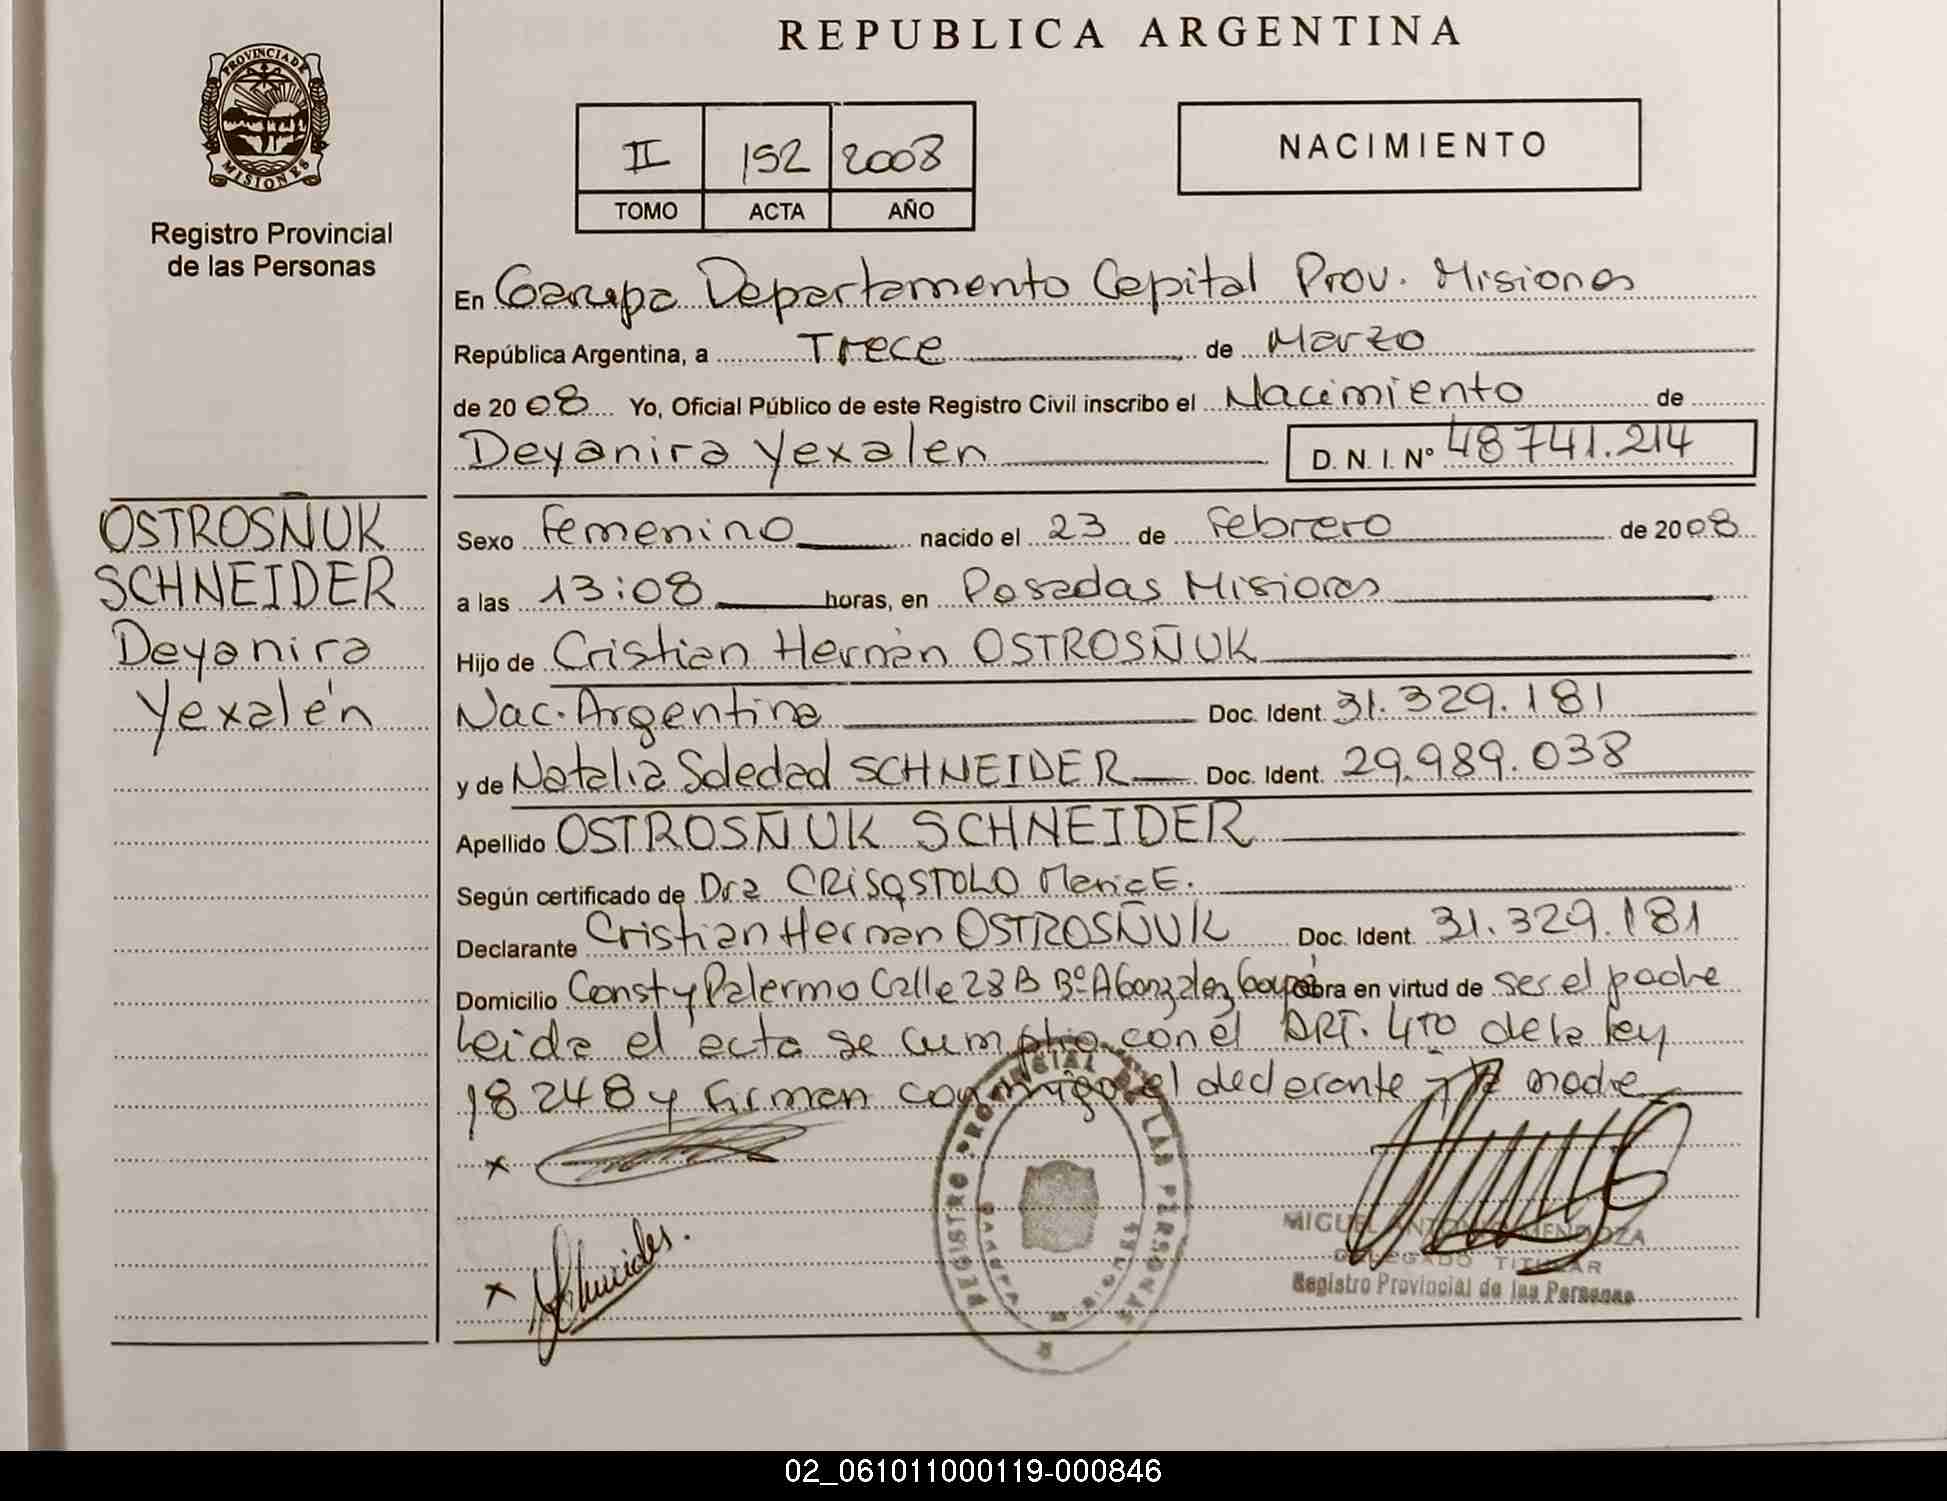 PROVINCIA DE
MISIONES
Registro Provincial
de las Personas
OSTROSÑUK
SCHNEIDER
Deyanira
Yexalén
REPUBLICA ARGENTINA
II 152 2008
TOMO ACTA AÑO
NACIMIENTO
En Garupa Departamento Capital Prov. Misiones
República Argentina, a Trece de Marzo
de 2008 Yo, Oficial Público de este Registro Civil inscribo el Nacimiento de
Deyanira Yexalen D. N. I. Nº 48741.214
Sexo Femenino nacido el 23 de Febrero de 2008
a las 13:08 horas, en Posadas Misiones
Hijo de Cristian Hernán OSTROSÑUK
Nac. Argentina Doc. Ident. 31.329.181
y de Natalia Soledad SCHNEIDER Doc. Ident. 29.989.038
Apellido OSTROSÑUK SCHNEIDER
Según certificado de Dra CRISOSTOLO Maria E.
Declarante Cristian Hernán OSTROSÑUK Doc. Ident. 31.329.181
Domicilio Const y Palermo Calle 28 B Bº A Gonzalez Garupá obra en virtud de ser el padre
Leida el acta se cumplio con el ART. 4TO de la ley
18248 y firman conmigo el declarante y la madre
x
x Schneider.
REGISTRO PROVINCIAL DE LAS PERSONAS
MIGUEL ANTONIO MENDOZA
DELEGADO TITULAR
Registro Provincial de las Personas
02_061011000119-000846